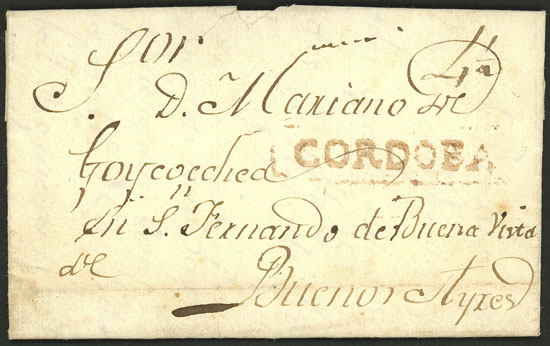 Sor
D. Mariano de
Goycoechea
CORDOBA
En S. Fernando de Buena Vista
de
Buenos Ayres